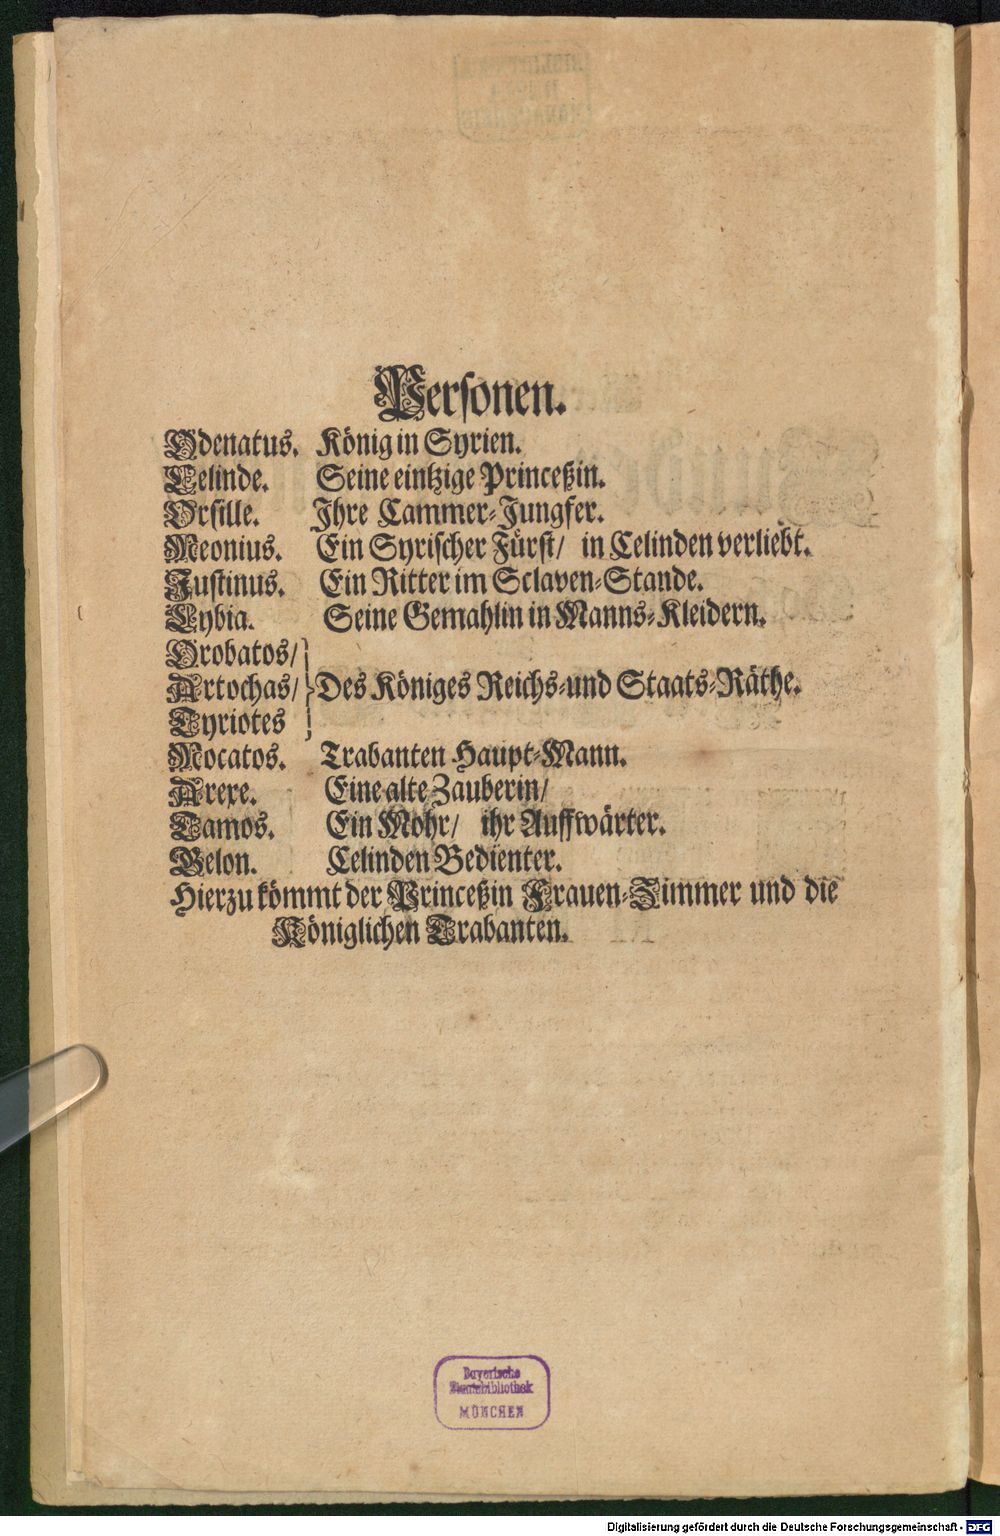 Personen.
Odenatus. König in Syrien.
Celinde. Seine eintzige Princeßin.
Orsille. Ihre Cammer-Jungfer.
Meonius. Ein Syrischer Fürst/ in Celinden verliebt.
Justinus. Ein Ritter im Sclaven-Stande.
Lybia. Seine Gemahlin in Manns-Kleidern.
Orobatos/
Artochas/ } Des Königes Reichs-und Staats-Räthe.
Tyriotes
Nocatos. Trabanten Haupt-Mann.
Arexe. Eine alte Zauberin/
Tamos. Ein Mohr/ ihr Auffwärter.
Belon. Celinden Bedienter.
Hierzu kömmt der Princeßin Frauen-Zimmer und die
Königlichen Trabanten.
Bayerische
Staatsbibliothek
MÜNCHEN
Digitalisierung gefördert durch die Deutsche Forschungsgemeinschaft - DFG